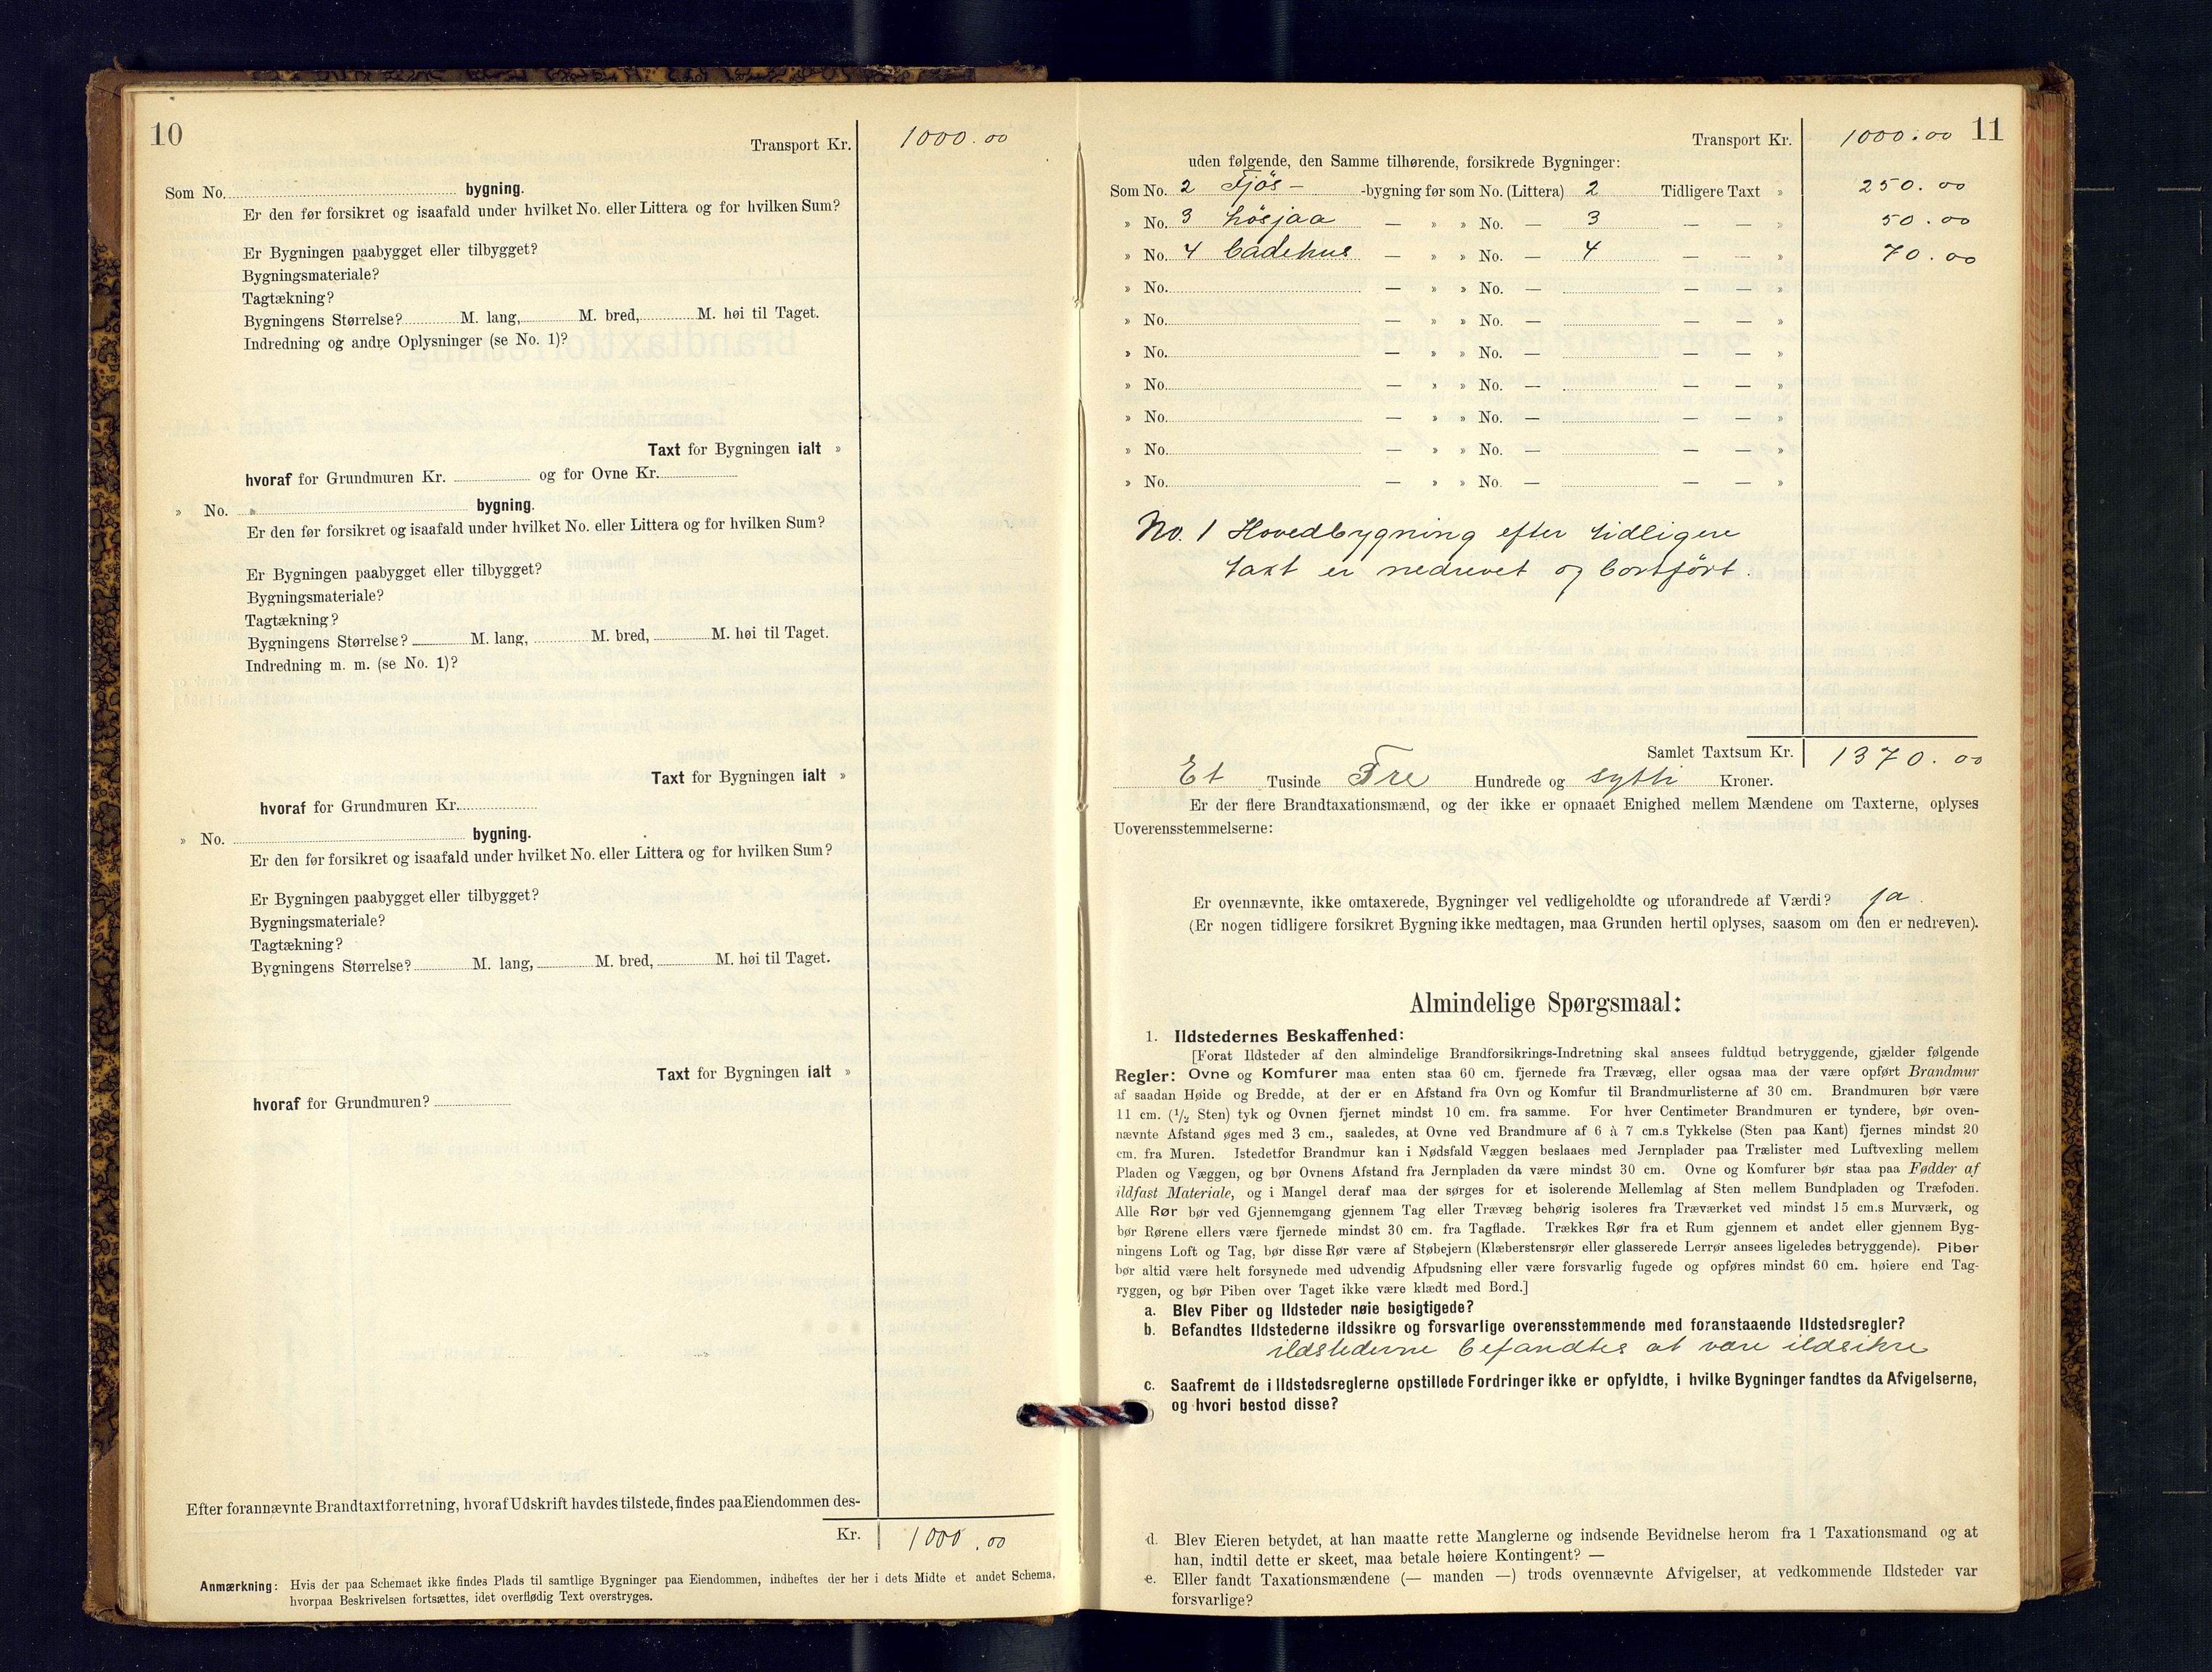 10
Transport Kr. 1000.00
Som No. bygning.
Er den før forsikret og isaafald under hvilket No. eller Littera og for hvilken Sum?
Er Bygningen paabygget eller tilbygget?
Bygningsmateriale?
Tagtækning?
Bygningens Størrelse? M. lang, M. bred, M. høi til Taget.
Indredning og andre Oplysninger (se No. 1)?
Taxt for Bygningen ialt »
hvoraf for Grundmuren Kr. og for Ovne Kr.
» No. bygning.
Er den før forsikret og isaafald under hvilket No. eller Littera og for hvilken Sum?
Er Bygningen paabygget eller tilbygget?
Bygningsmateriale?
Tagtækning?
Bygningens Størrelse? M. lang, M. bred, M. høi til Taget.
Indredning m. m. (se No. 1)?
Taxt for Bygningen ialt »
hvoraf for Grundmuren Kr.
» No. bygning.
Er den før forsikret og isaafald under hvilket No. eller Littera og for hvilken Sum?
Er Bygningen paabygget eller tilbygget?
Bygningsmateriale?
Tagtækning?
Bygningens Størrelse? M. lang, M. bred, M. høi til Taget.
Taxt for Bygningen ialt »
hvoraf for Grundmuren?
Efter forannævnte Brandtaxtforretning, hvoraf Udskrift havdes tilstede, findes paa Eiendommen des-
Kr. 1000.00
Anmærkning: Hvis der paa Schemaet ikke findes Plads til samtlige Bygninger paa Eiendommen, indheftes der her i dets Midte et andet Schema,
hvorpaa Beskrivelsen fortsættes, idet overflødig Text overstryges.
11
Transport Kr. 1000.00
uden følgende, den Samme tilhørende, forsikrede Bygninger:
Som No. 2 Fjøs- -bygning før som No. (Littera) 2 Tidligere Taxt » 250.00
» No. 3 høsjaa — » » No. — 3 — — » 50.00
» No. 4 badehus — » » No. — 4 — — » 70.00
» No. — » » No. — — — »
» No. — » » No. — — — »
» No. — » » No. — — — »
» No. — » » No. — — — »
» No. — » » No. — — — »
» No. — » » No. — — — »
» No. — » » No. — — — »
No. 1 Hovedbygning efter tidligere
taxt er nedrevet og bortført.
Samlet Taxtsum Kr. 1370.00
Et Tusinde Tre Hundrede og sytti Kroner.
Er der flere Brandtaxationsmænd, og der ikke er opnaaet Enighed mellem Mændene om Taxterne, oplyses
Uoverensstemmelserne:
Er ovennævnte, ikke omtaxerede, Bygninger vel vedligeholdte og uforandrede af Værdi? ja.
(Er nogen tidligere forsikret Bygning ikke medtagen, maa Grunden hertil oplyses, saasom om den er nedreven).
Almindelige Spørgsmaal:
1. Ildstedernes Beskaffenhed:
[Forat Ildsteder af den almindelige Brandforsikrings-Indretning skal ansees fuldtud betryggende, gjælder følgende
Regler: Ovne og Komfurer maa enten staa 60 cm. fjernede fra Trævæg, eller ogsaa maa der være opført Brandmur
af saadan Høide og Bredde, at der er en Afstand fra Ovn og Komfur til Brandmurlisterne af 30 cm. Brandmuren bør være
11 cm. (1/2 Sten) tyk og Ovnen fjernet mindst 10 cm. fra samme. For hver Centimeter Brandmuren er tyndere, bør oven-
nævnte Afstand øges med 3 cm., saaledes, at Ovne ved Brandmure af 6 à 7 cm.s Tykkelse (Sten paa Kant) fjernes mindst 20
cm. fra Muren. Istedetfor Brandmur kan i Nødsfald Væggen beslaaes med Jernplader paa Trælister med Luftvexling mellem
Pladen og Væggen, og bør Ovnens Afstand fra Jernpladen da være mindst 30 cm. Ovne og Komfurer bør staa paa Fødder af
ildfast Materiale, og i Mangel deraf maa der sørges for et isolerende Mellemlag af Sten mellem Bundpladen og Træfoden.
Alle Rør bør ved Gjennemgang gjennem Tag eller Trævæg behørig isoleres fra Træværket ved mindst 15 cm.s Murværk, og
bør Rørene ellers være fjernede mindst 30 cm. fra Tagflade. Trækkes Rør fra et Rum gjennem et andet eller gjennem Byg-
ningens Loft og Tag, bør disse Rør være af Støbejern (Klæberstensrør eller glasserede Lerrør ansees ligeledes betryggende). Piber
bør altid være helt forsynede med udvendig Afpudsning eller være forsvarlig fugede og opføres mindst 60 cm. høiere end Tag-
ryggen, og bør Piben over Taget ikke være klædt med Bord.]
a. Blev Piber og Ildsteder nøie besigtigede?
b. Befandtes Ildstederne ildssikre og forsvarlige overensstemmende med foranstaaende Ildstedsregler?
ildstederne befandtes at være ildsikre
c. Saafremt de i Ildstedsreglerne opstillede Fordringer ikke er opfyldte, i hvilke Bygninger fandtes da Afvigelserne,
og hvori bestod disse?
d. Blev Eieren betydet, at han maatte rette Manglerne og indsende Bevidnelse herom fra 1 Taxationsmand og at
han, indtil dette er skeet, maa betale høiere Kontingent? —
e. Eller fandt Taxationsmændene (— manden —) trods ovennævnte Afvigelser, at vedkommende Ildsteder var
forsvarlige?